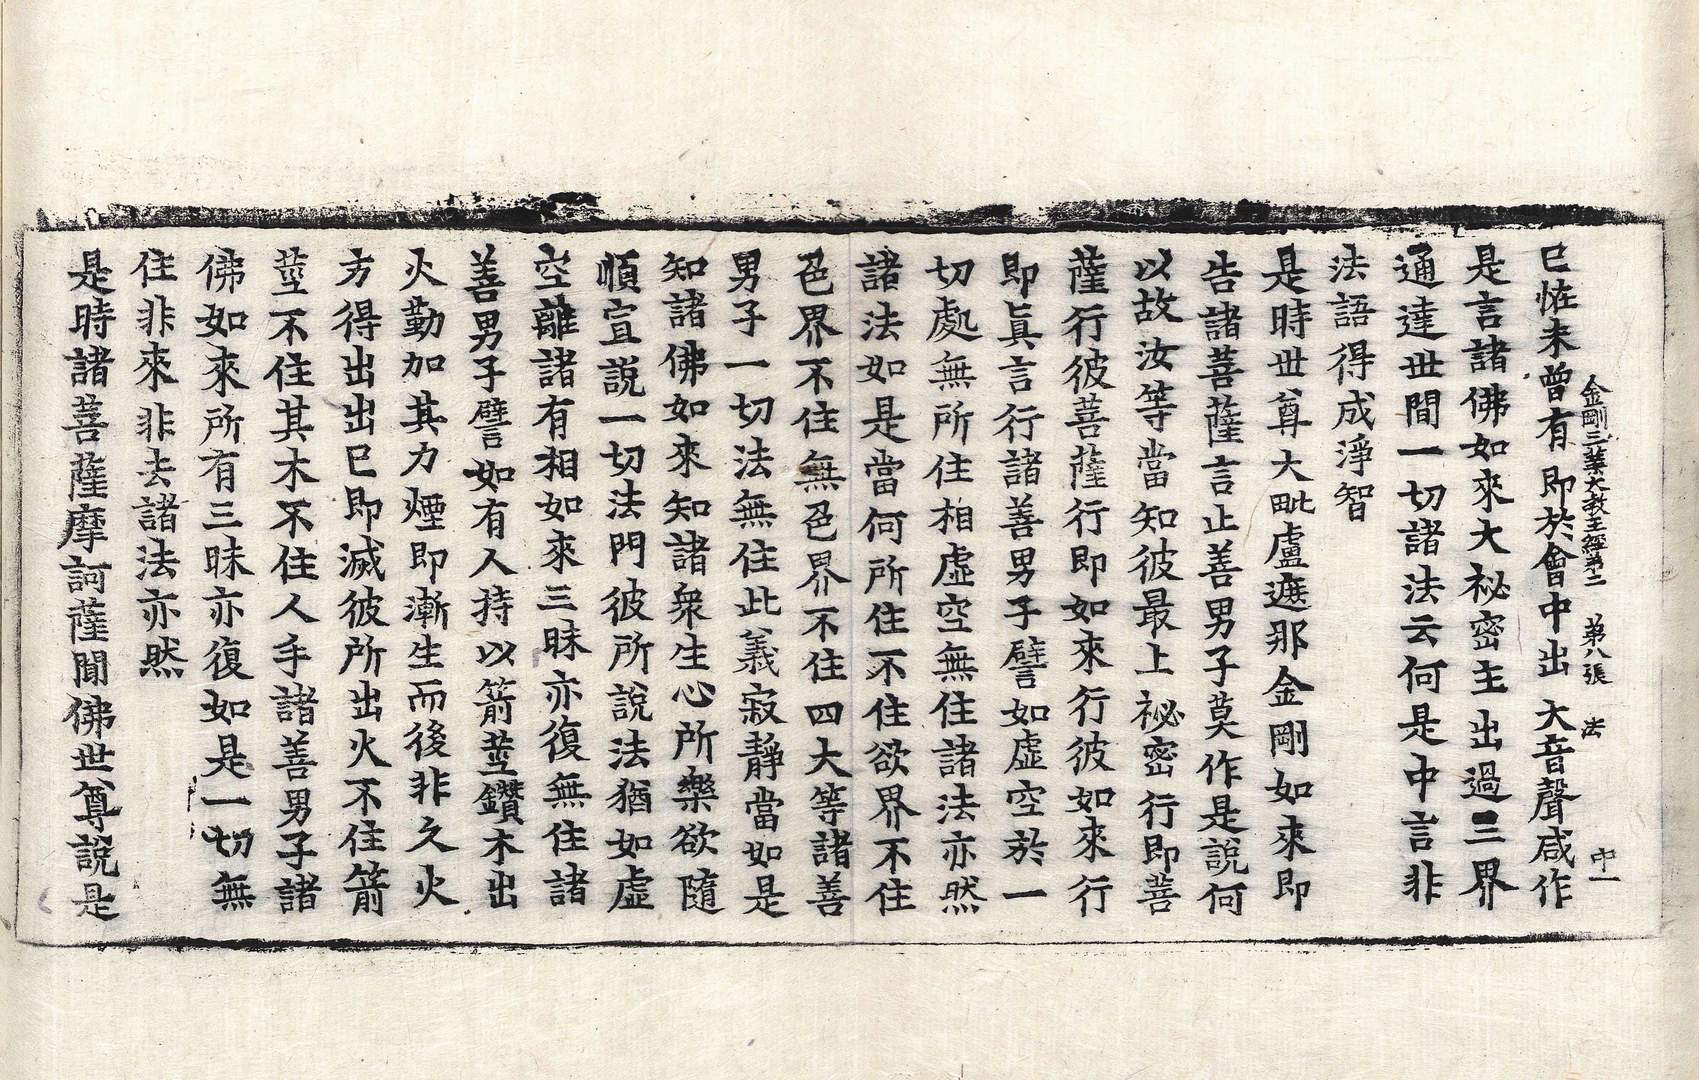 金剛三業大教王經第二　第八張　法　中一
已恠未曾有即於會中出大音聲咸作
是言諸佛如來大祕密主出過三界
通達世間一切諸法云何是中言非
法語得成淨智
是時世尊大毗盧遮那金剛如來即
告諸菩薩言止善男子莫作是說何
以故汝等當知彼最上祕密行即菩
薩行彼菩薩行即如來行彼如來行
即眞言行諸善男子譬如虛空於一
切處無所住相虛空無住諸法亦然
諸法如是當何所住不住欲界不住
色界不住無色界不住四大等諸善
男子一切法無住此義寂靜當如是
知諸佛如來知諸衆生心所樂欲隨
順宣說一切法門彼所說法猶如虛
空離諸有相如來三昧亦復無住諸
善男子譬如有人持以箭莖鑽木出
火勤加其力煙即漸生而後非久火
方得出出已即滅彼所出火不住箭
莖不住其木不住人手諸善男子諸
佛如來所有三昧亦復如是一切無
住非來非去諸法亦然
是時諸菩薩摩訶薩聞佛世尊說是